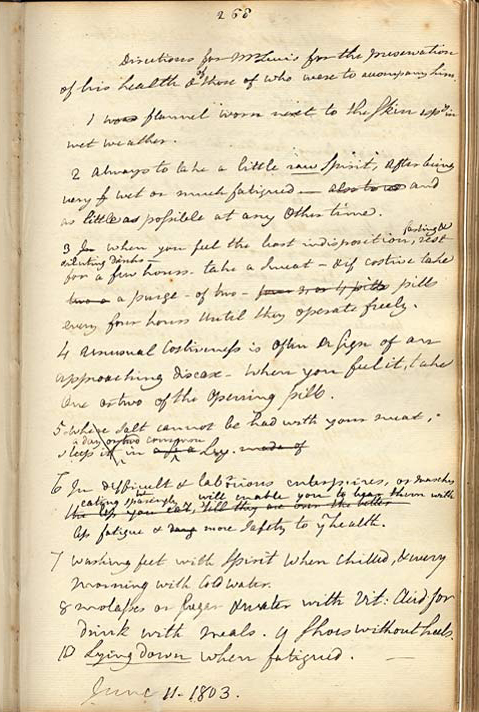 268
Directions for Mr Lewis for the preservation
of his health & of those of who were to accompany him.
1 flannel worn next to the skin espy in
wet weather.
2 Always to take a little raw Spirit, after being
very wet or much fatigued — and
as little as possible at any other time.
3 when you feel the least indisposition, fasting & rest
diluting drinks —
for a few hours. take a sweat — & if costive take
a purge — of two — four 3, or 4 pills pills
every four hours until they operate freely.
4 Unusual Costiveness is often a sign of an
approaching disease — When you feel it, take
one or two of the opening pills.
5 where Salt cannot be had with your meat,
a day or two common
steep it in a Ley. made of
6 In difficult & laborious enterprizes, or marches
eating sparingly will enable you to bear them with
the less you eat,
less fatigue & more safety to y health.
7 washing feet with Spirit when chilled, & every
morning with Cold water.
8 molases or Sugar & water with Vit: Acid for
drink with meals. 9 Shoes without heels.
10 Lying down when fatigued. —
June 11 - 1803.